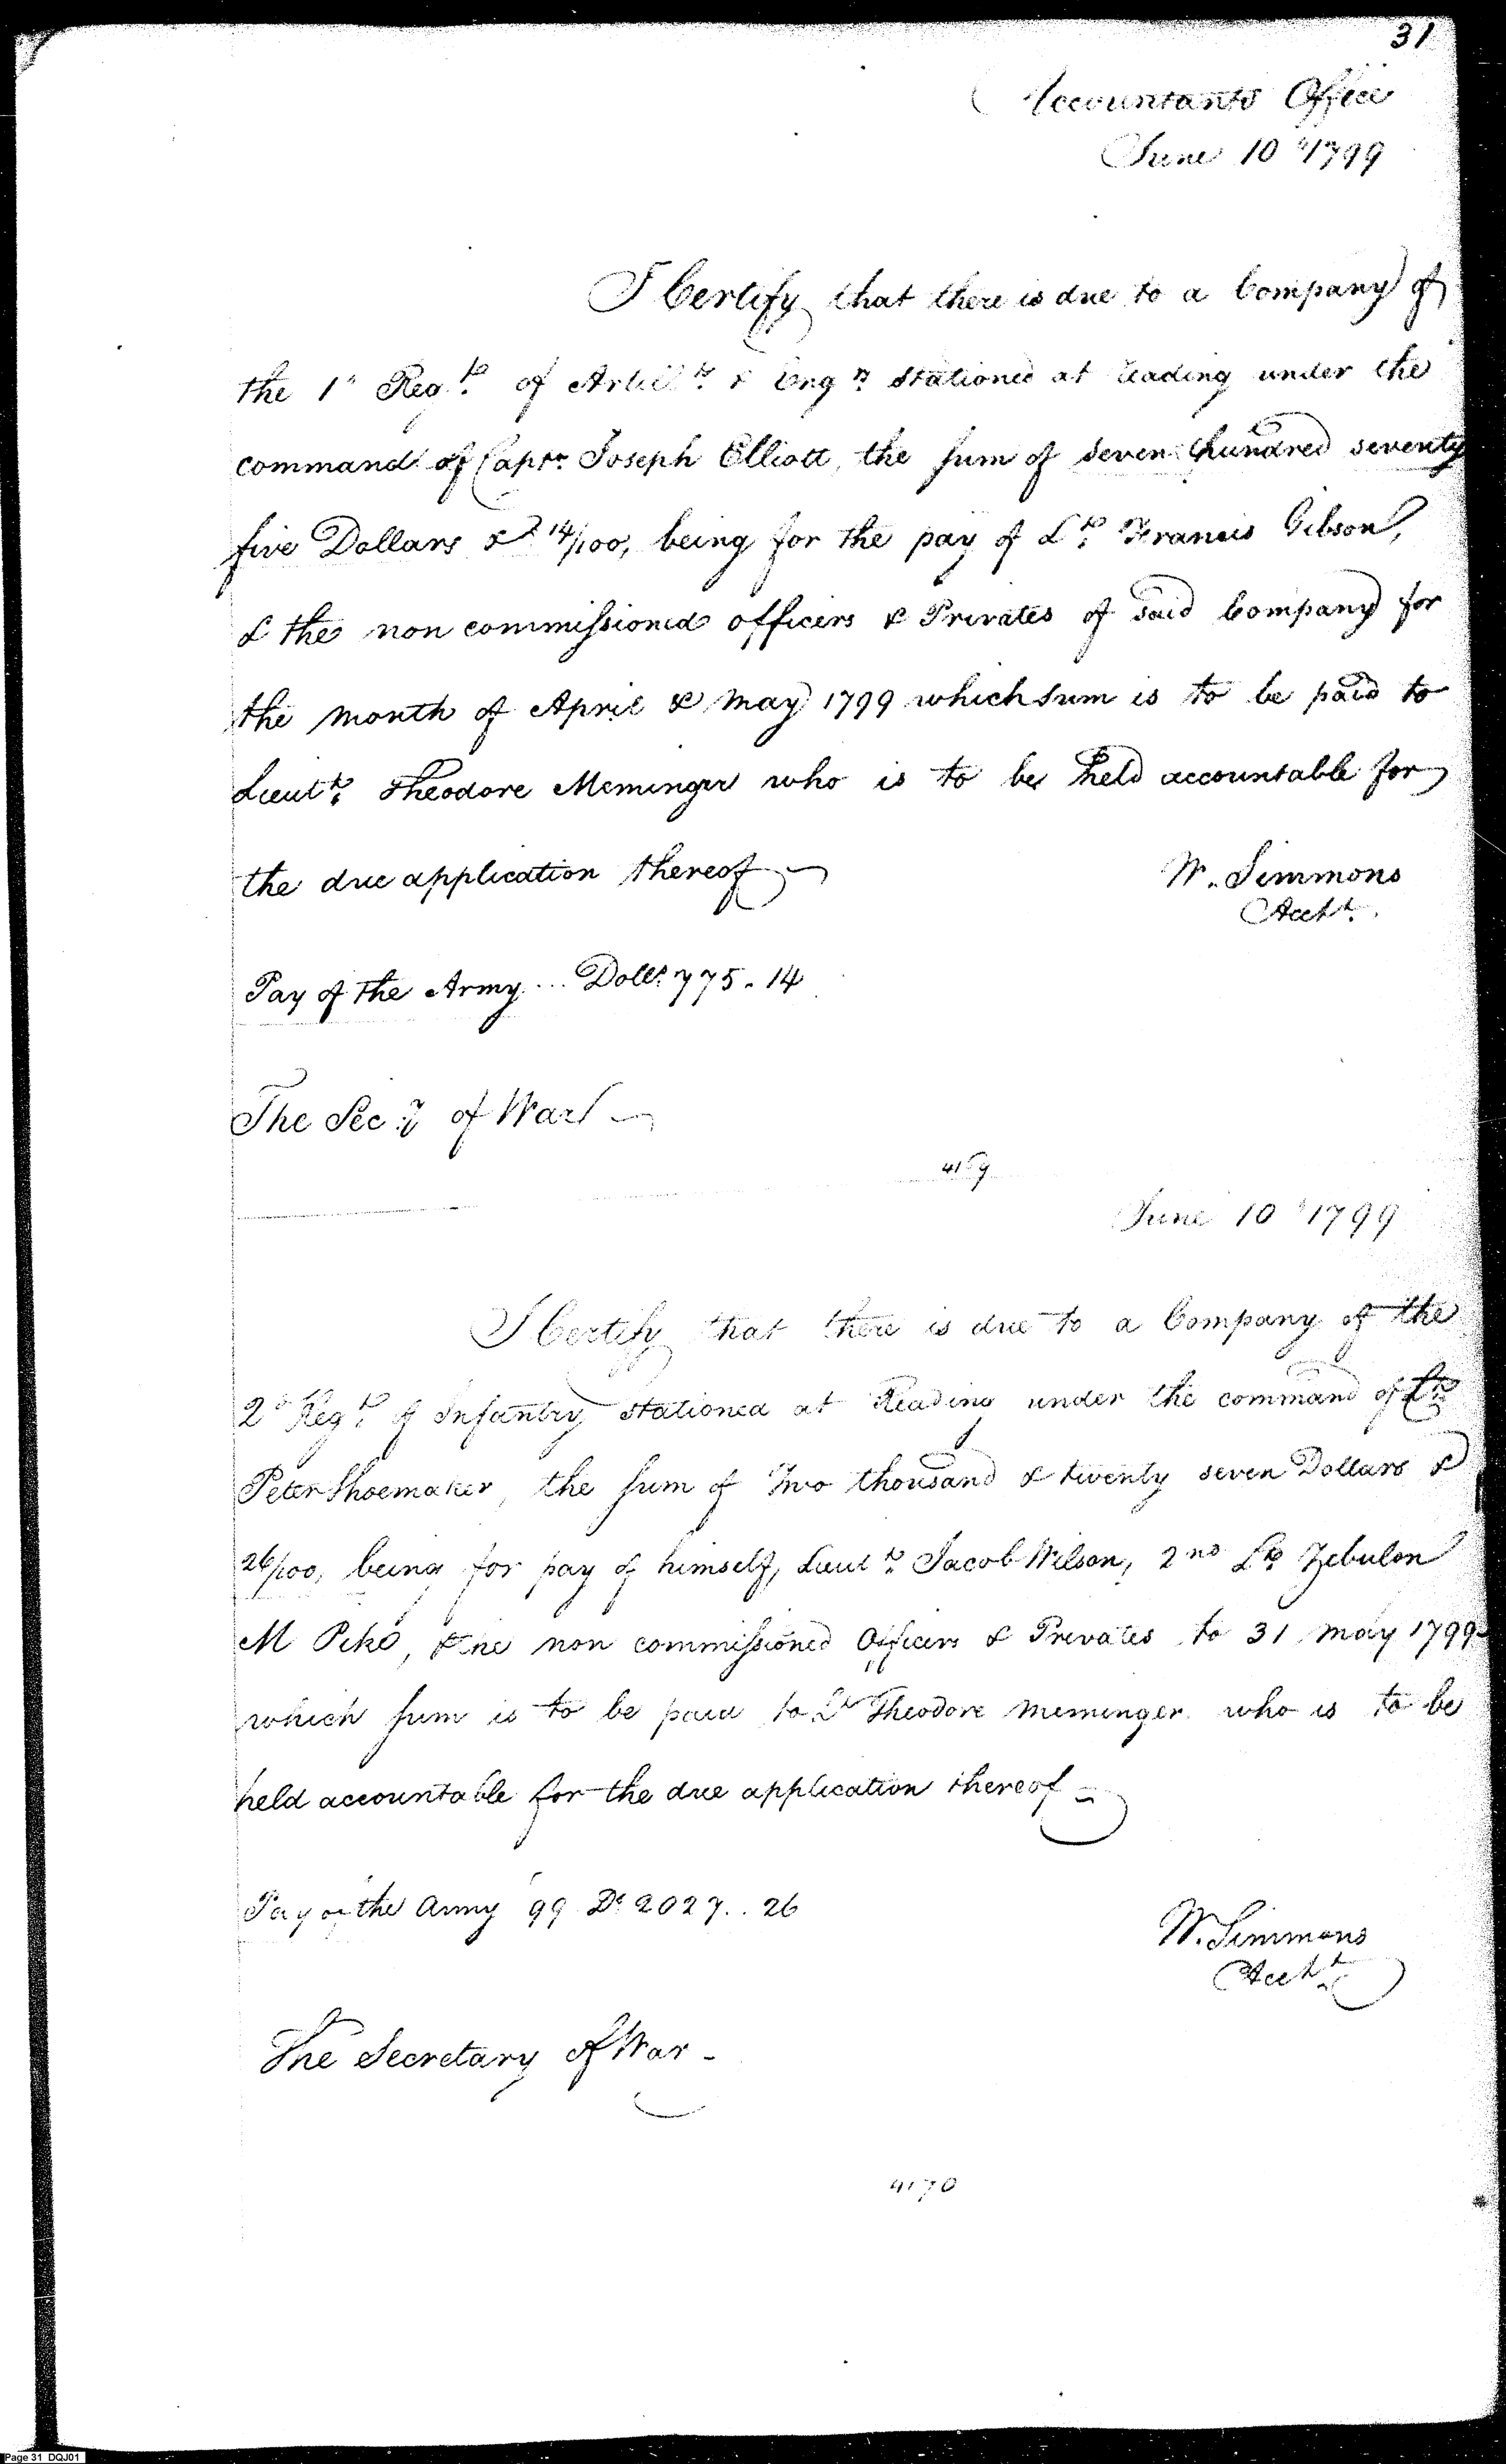 31
Accountants Office
June 10th 1799
I Certify that there is due to a Company of
the 1st Regt. of Artillry. & Engrs. stationed at Reading under the
command of Captn. Joseph Elliott, the sum of seven hundred seventy
five Dollars & 14/100, being for the pay of Lt. Francis Gibson,
& the non commissioned officers & Privates of said Company for
the month of April & May 1799 which sum is to be paid to
Lieutt. Theodore Meminger who is to be held accountable for
the due application thereof
W. Simmons
Acctt.
Pay of the Army ... Dolls. 775.14
The Secy. of War
4169
June 10th 1799
I Certify that there is due to a Company of the
2d Regt. of Infantry stationed at Reading under the command of Lt.
Peter Shoemaker, the sum of Two thousand & twenty seven Dollars &
26/100, being for pay of himself, Lieutt. Jacob Wilson, 2nd Lt. Zebulon
M Pike, & the non commissioned Officers & Privates to 31 May 1799
which sum is to be paid to Lt. Theodore Meminger who is to be
held accountable for the due application thereof
Pay of the Army 99 Ds. 2027..26
W. Simmons
Acctt.
The Secretary of War -
4170
Page 31 DQJ01